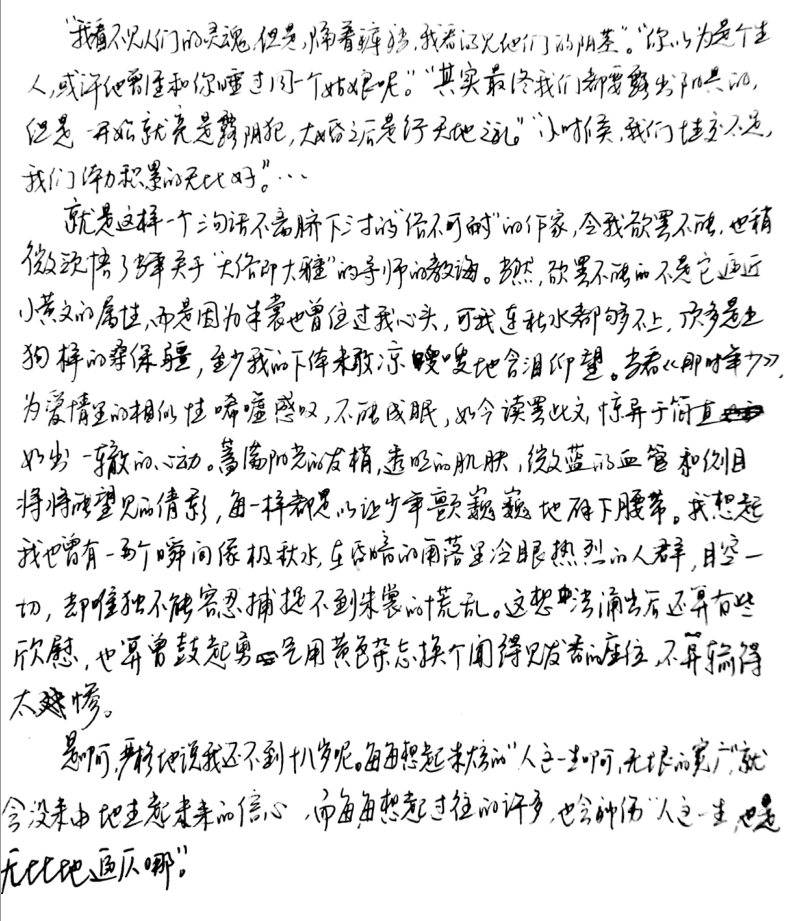 "我看不见人们的灵魂,但是,隔着裤裆,我看得见他们的阴茎"。"你以为是个生
人,或许他曾经和你睡过同一个姑娘呢。""其实最终我们都要露出阳具的,
但是一开始就亮是露阴犯,大婚之后是行天地之礼。""小时候,我们性交不足,
我们体力积累的无比好"。…
就是这样一个三句话不离脐下三寸的"俗不可耐"的作家,令我欲罢不能,也稍
微顿悟了当年关于"大俗即大雅"的导师的教诲。当然,欲罢不能的不是它逼近
小黄文的属性,而是因为朱裳也曾住过我心头,可我连秋水都够不上,顶多是土
狗样的桑保疆,至少我的下体未敢凉嗖嗖地含泪仰望。当看《那时年少》,
为爱情里的相似性唏嘘感叹,不能成眠,如今读罢此文,惊异于简直
如出一辙的心动。蓄满阳光的发梢,透明的肌肤,微蓝的血管和侧目
将将能望见的倩影,每一样都足以让少年颤巍巍地砰下腰带。我想起
我也曾有一两个瞬间像极秋水,在昏暗的角落里冷眼热烈的人群,目空一
切,却唯独不能容忍捕捉不到朱裳的慌乱。这想法涌出后还算有些
欣慰,也算曾鼓起勇气用黄色杂志换个闻得见发香的座位,不算输得
太惨。
是啊,严格地说我还不到十八岁呢。每每想起朱裳的"人这一生啊,无垠的宽广"就
会没来由地生起未来的信心,而每每想起过往的许多,也会神伤"人这一生,也是
无比地逼仄哪"。